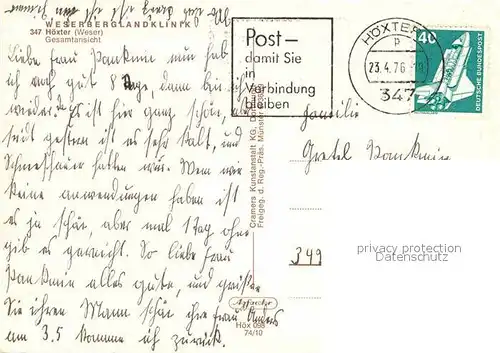 WESERBERGLANDKLINIK
347 Höxter (Weser)
Gesamtansicht
Liebe Frau Panknin nun hab
ich noch gut 8 Tage, dann bin ich
wieder da. Es ist hier ganz schön, aber
seit gestern ist es sehr kalt, und
Schneeschauer hatten wir. Wenn wir
keine anwendungen haben ist
es ja schön, aber mal 1 Tag ohne
gib es garnicht. So liebe Frau
Panknin alles gute, und grüßen
Sie ihren Mann schön ihre Frau Anders
am 3.5 komme ich zurück.
Post –
damit Sie
in
Verbindung
bleiben
HÖXTER
23.4.76
347
40
DEUTSCHE BUNDESPOST
Familie
Gretel Panknin
349
Cramers Kunstanstalt KG, Dortmund
Freigeg. d. Reg.-Präs. Münster
Höx 098
74/10
privacy protection
Datenschutz